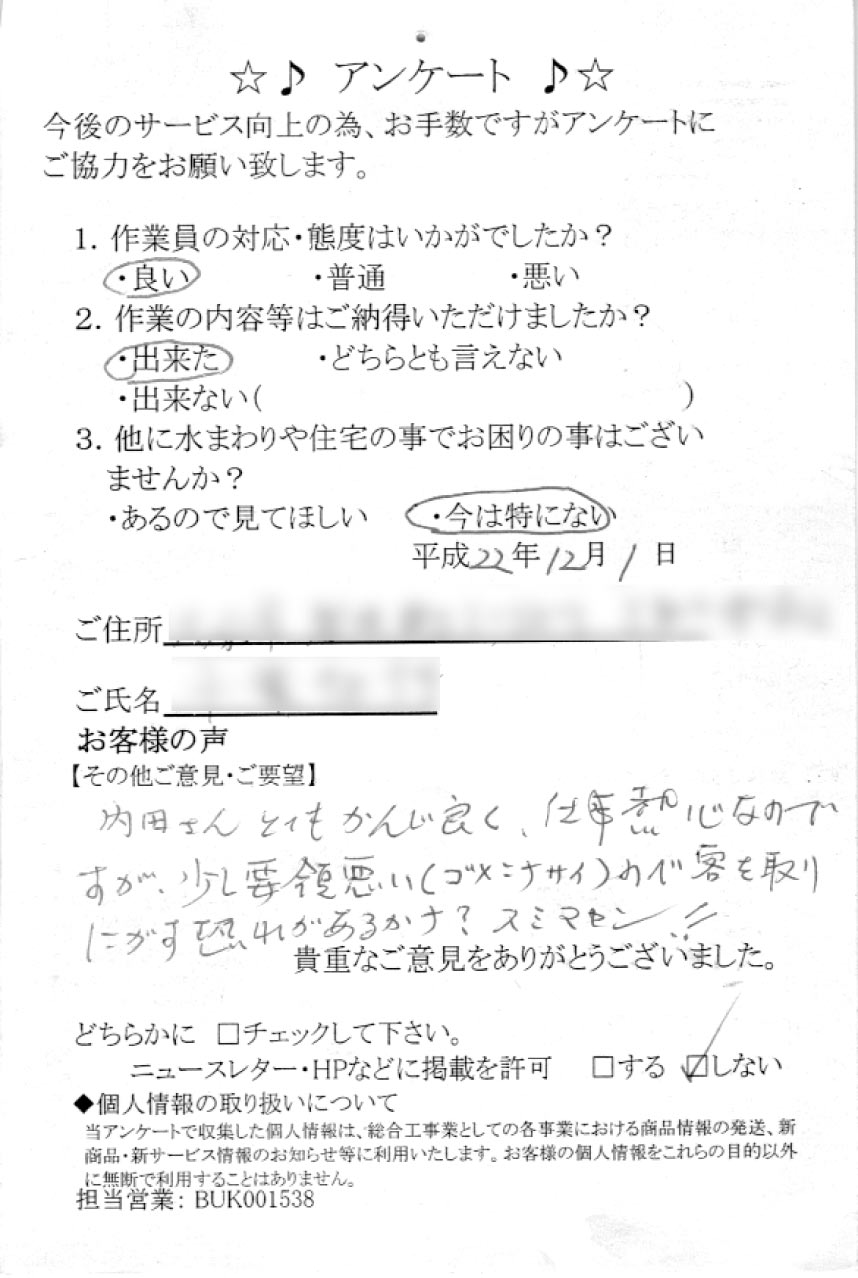 ☆♪ アンケート ♪☆
今後のサービス向上の為、お手数ですがアンケートに
ご協力をお願い致します。
1. 作業員の対応・態度はいかがでしたか？
・良い ・普通 ・悪い
2. 作業の内容等はご納得いただけましたか？
・出来た ・どちらとも言えない
・出来ない( )
3. 他に水まわりや住宅の事でお困りの事はござい
ませんか？
・あるので見てほしい ・今は特にない
平成22年12月1日
ご住所
ご氏名
お客様の声
【その他ご意見・ご要望】
内田さんとてもかんじ良く、仕事熱心なので
すが、少し要領悪い(ゴメンナサイ)ので客を取り
にがす恐れがあるかナ？スミマセン!!
貴重なご意見をありがとうございました。
どちらかに □チェックして下さい。
ニュースレター・HPなどに掲載を許可 □する ☑しない
◆個人情報の取り扱いについて
当アンケートで収集した個人情報は、総合工事業としての各事業における商品情報の発送、新
商品・新サービス情報のお知らせ等に利用いたします。お客様の個人情報をこれらの目的以外
に無断で利用することはありません。
担当営業：BUK001538